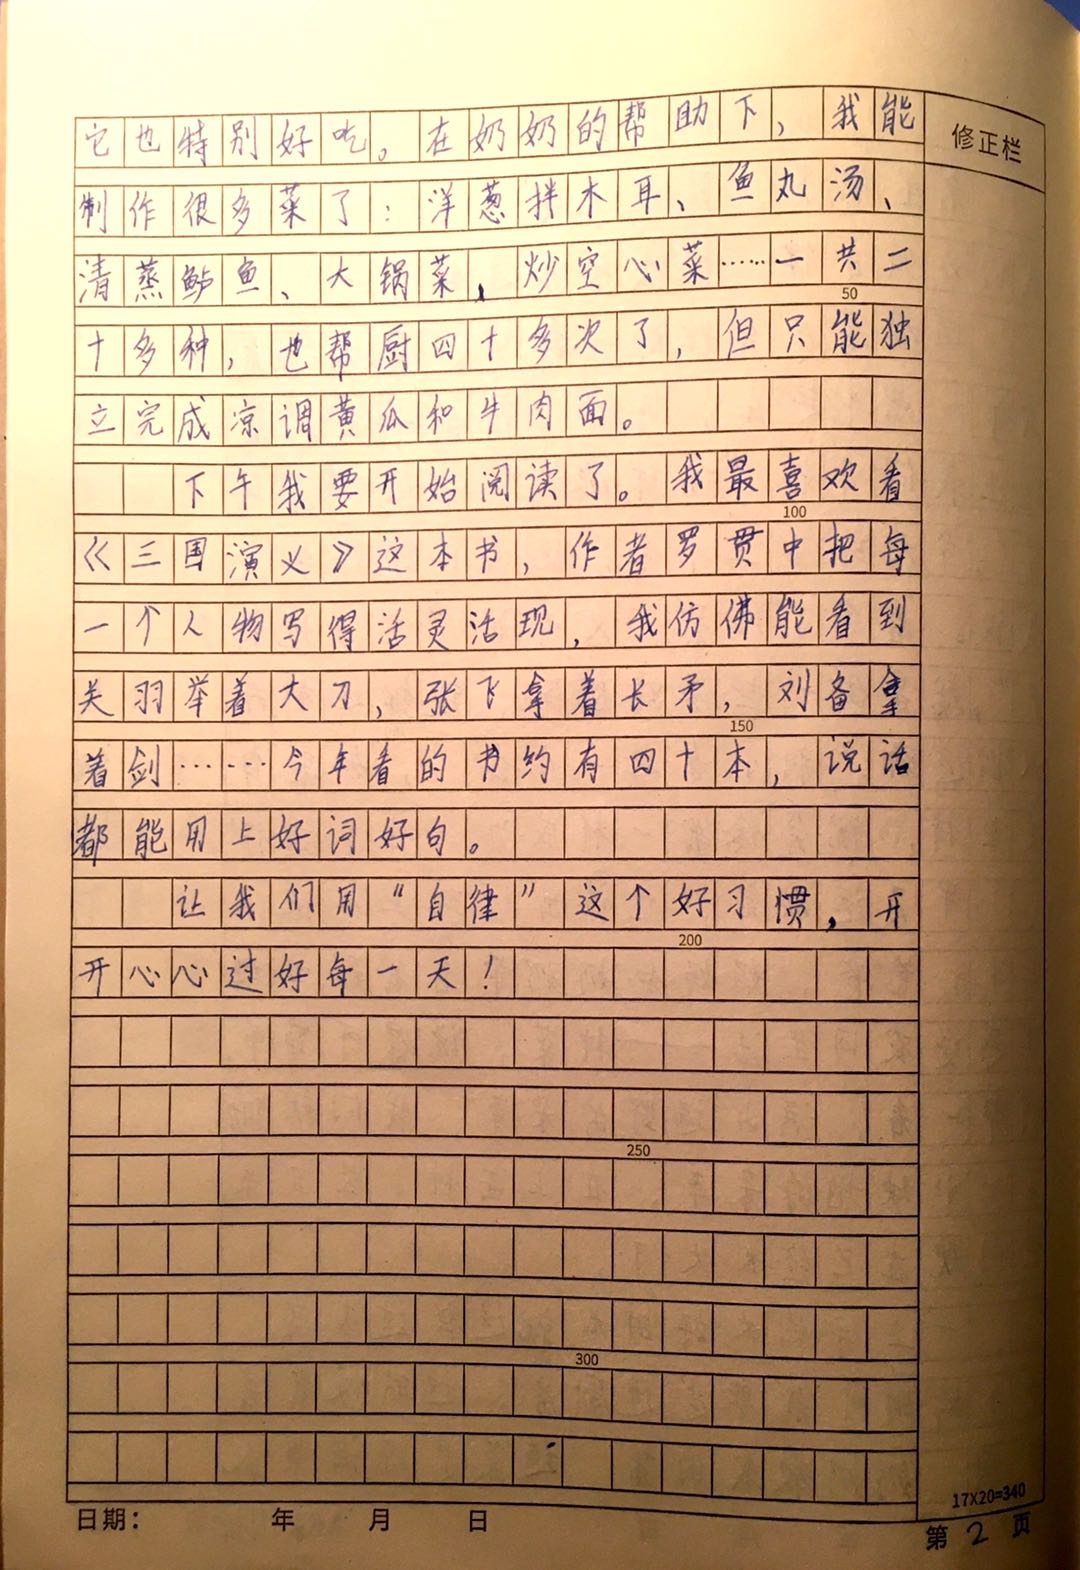 它也特别好吃。在奶奶的帮助下，我能
修正栏
制作很多菜了：洋葱拌木耳、鱼丸汤、
清蒸鲈鱼、大锅菜，炒空心菜……一共二
50
十多种，也帮厨四十多次了，但只能独
立完成凉调黄瓜和牛肉面。
下午我要开始阅读了。我最喜欢看
100
《三国演义》这本书，作者罗贯中把每
一个人物写得活灵活现，我仿佛能看到
关羽举着大刀，张飞拿着长矛，刘备拿
150
着剑……今年看的书约有四十本，说话
都能用上好词好句。
让我们用“自律”这个好习惯，开
200
开心心过好每一天！
250
300
17X20=340
日期： 年 月 日
第 2 页